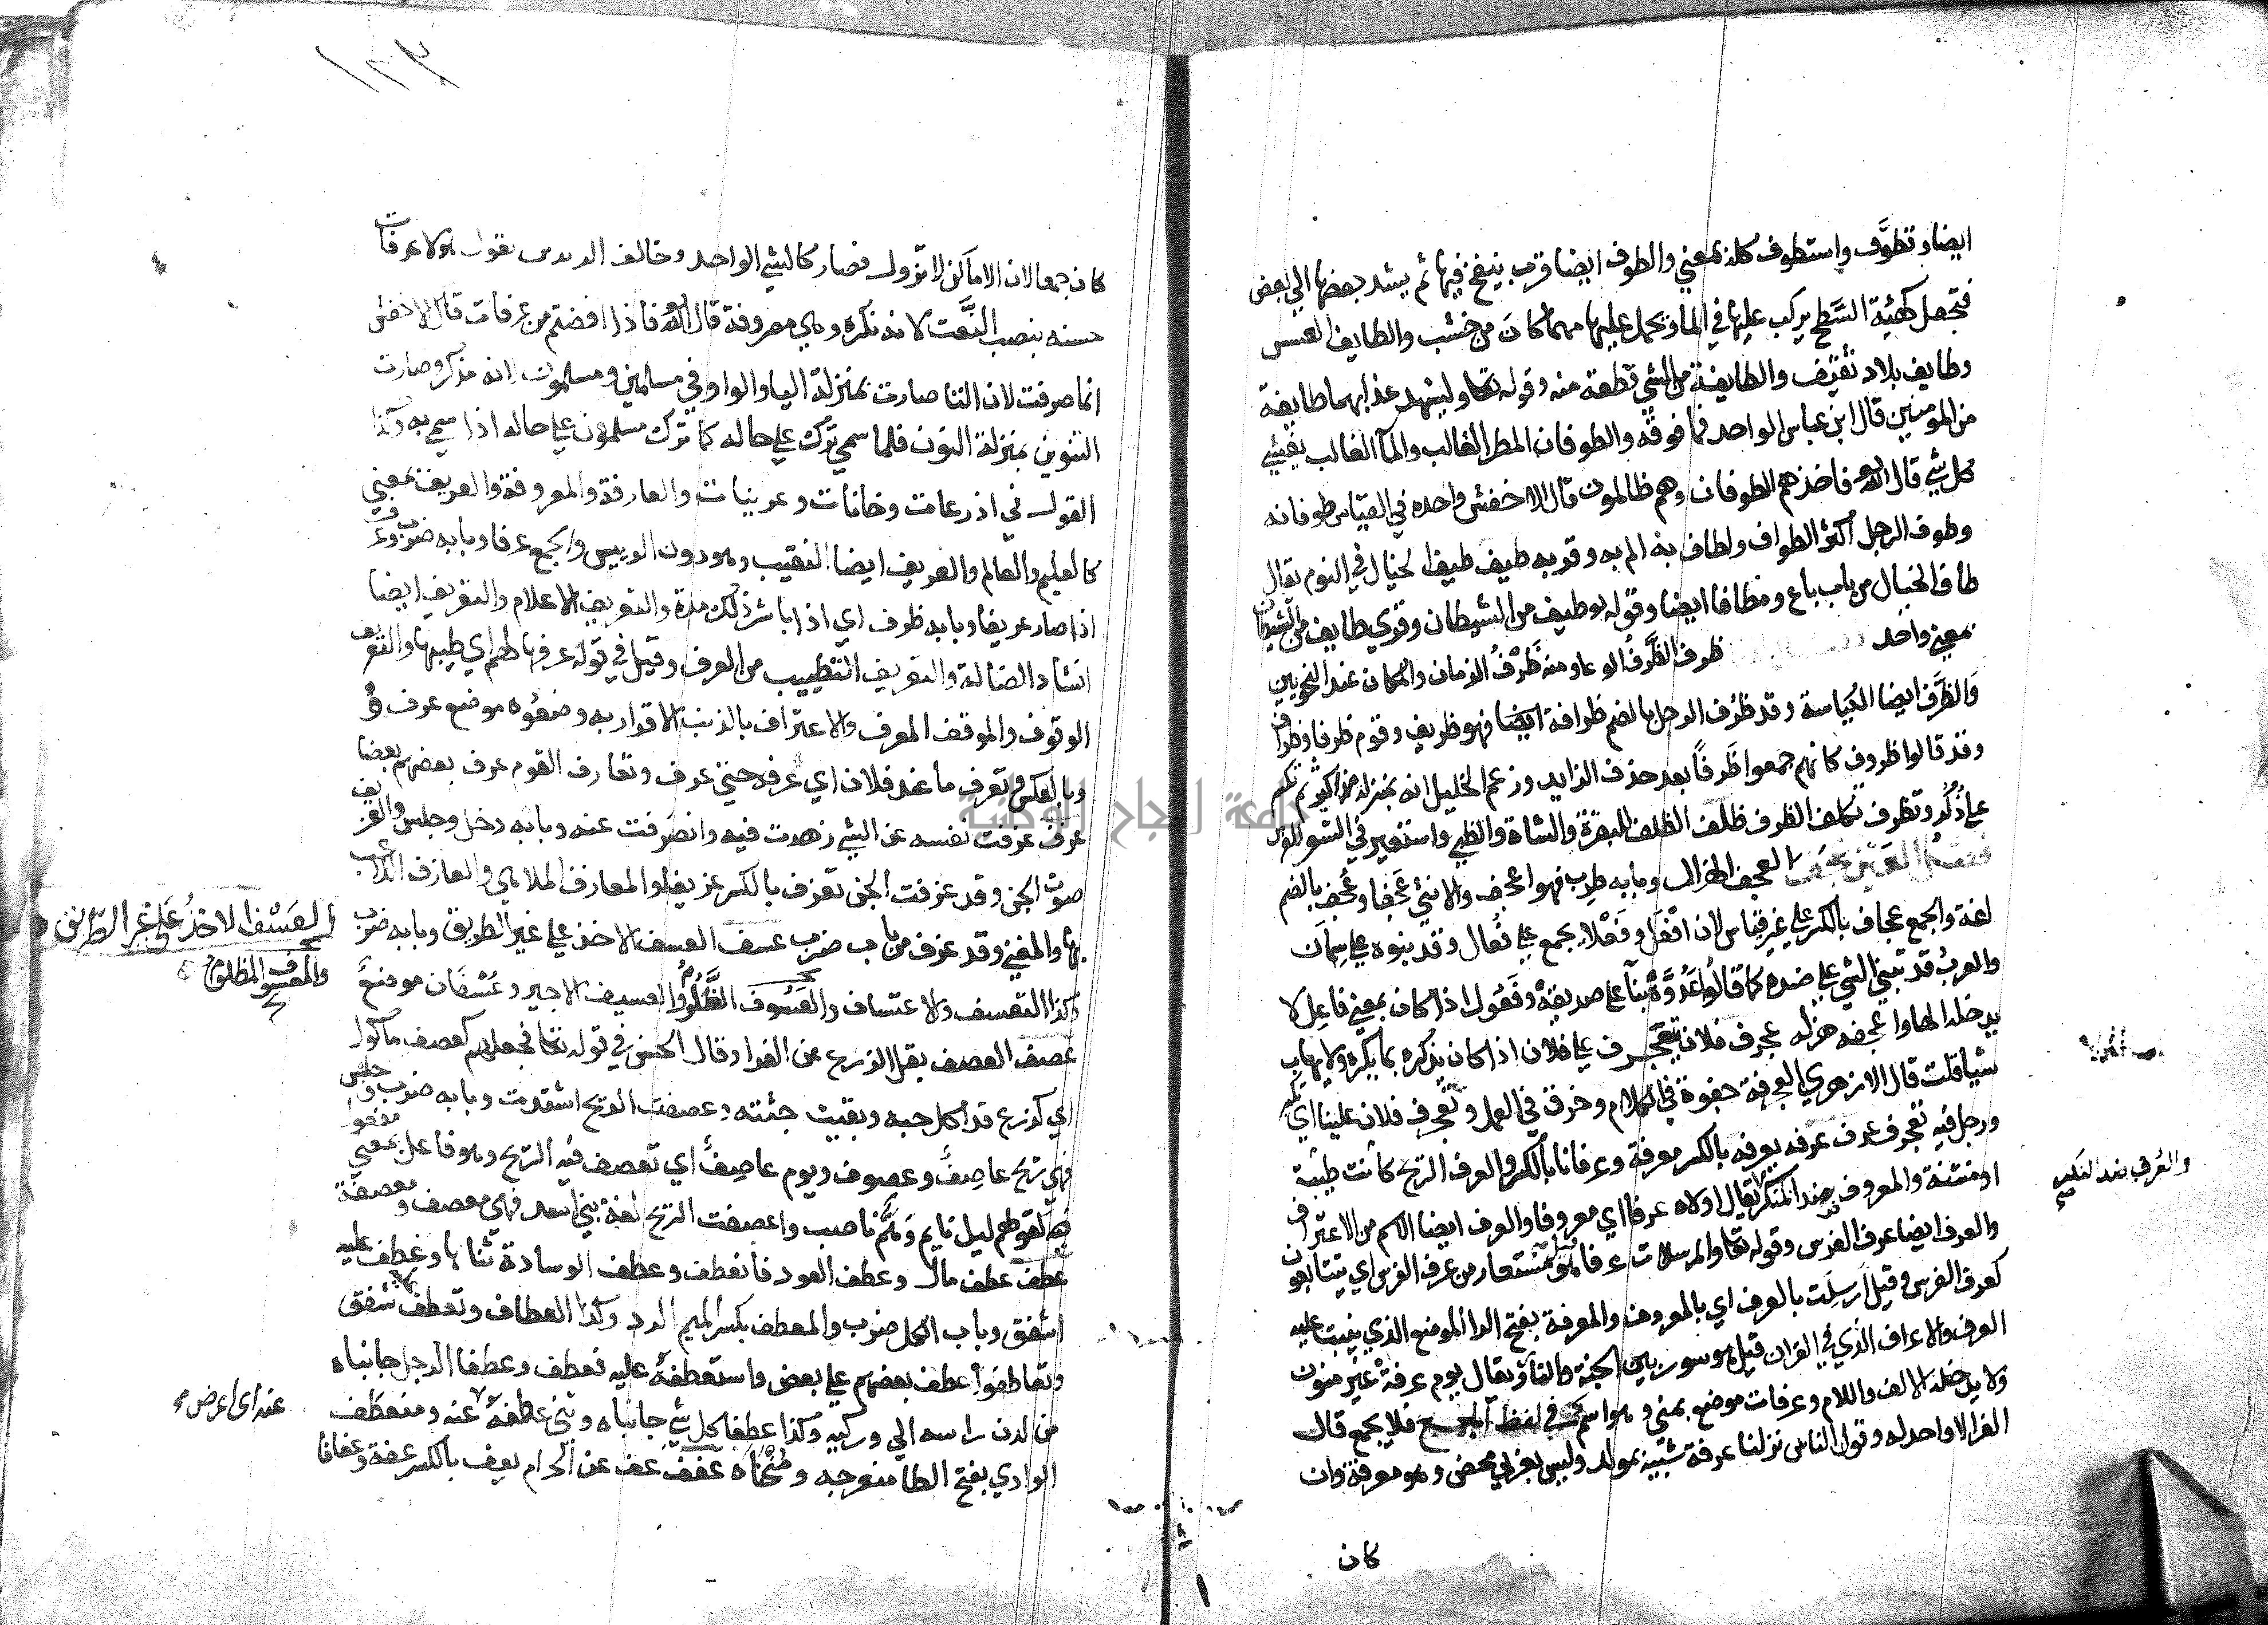 ايضا وتطوَّف واستطوف كله بمعني والطوف ايضا قرب ينفخ فيها ثم يشد بعضها الي بعض
فتجعل كهئية السَّطح يركب عليها في الما ويحمل عليها مهما كان من خشب والطايف العسس
وطايف بلاد ثقيف والطايفة من الشي قطعة منه وقوله تعا وليشهد عذابهما طايفة
من المومنين قال ابن عباس الواحد فما فوقه والطوفان المطر الغالب والمآ الغالب يغشي
كل شي قال الله فاخذهم الطوفان وهم ظالمون قال الاخفش واحده في القياس طوفانه
وطوف الرجل اكثر الطواف واطاف به الم به وقربه طيف طيف الخيال في النوم يقال
طاف الخيال من باب باع ومطافا ايضا وقوله طيف من الشيطان وقري طايف من الشيطان
بمعني واحد ظرف الظَّرفُ الوعا ومنه ظَرْفُ الزمان والمكان عند النحويين
والظَّرف ايضا الكياسة وقد ظرُف الرجل بالضم ظرافة ايضا فهو ظريف وقوم ظرفا وظراف
وقد قالوا ظروف كانهم جمعوا ظَرفًا بعد حذف الزايد وزعم الخليل انه بمنزلة مذاكير لم تكسر
علي ذُكُر وتظرف تكلف الظرف ظلف الظلف للبقرة والشاة والظبي واستعير في الشعر للفرس
فصل العين عجف العجف الهزال وبابه طرب فهو اعجف والانثي عَجفا وعُجِف بالضم
لغة والجمع عجاف بالكسر علي غير قياس لان افْعَل وفَعْلا لا يجمع علي فُعال وقد بنوه علي سِمان
والعربُ قد تبني الشي علي ضده كما قالُوا عَدُوَّة بنآ علي صديقة وفَعُول اذا كان بمعني فاعِل لا
يدخله الها واعجفه هزله عجرف فلان يتعجرف علي فلان اذا كان يركبه بما يكره ولا يهاب
شيا قلت قال الازهري العجرفة جفوة في الكلام وخرق في العمل وتعجرف فلان علينا اي تكبر
ورجل فيه تعجرف عرف عرفه يعرفه بالكسر معرفة وعرفانا بالكسر والعرف الريح كانت طيّبة
او منتنة والمعروف ضد المنكر يقال اولاه عرفا اي معروفا والعرف ايضا الاسم من الاعتراف
والعُرف ضد النكر صح
والعرف ايضا عرف الفرس وقوله تعا والمرسلات عرفا قيل هو مُستعار من عرف الفرس اي يتتابعون
كعرف الفرس وقيل اُرسلَت بالعرف اي بالمعروف والمعرفة بفتح الرا الموضع الذي ينبت عليه
العرف والاعراف الذي في القران قيل هو سور بين الجنة والنار ويقال يوم عرفةَ غيرُ منون
ولا يدخله الالف واللام وعرفات موضع بمني وهو اسم في لفظ الجمع فلا يجمع قال
الفرا لا واحد له وقول الناس نزلنا عرفة شبيه بمولد وليس بعربي محض وهو معرفة وان
كان
١٢٣
كان جمعا لان الاماكن لا تزول فصار كالشي الواحد وخالف الزيدين تقول هولا عرفات
حسنه بنصب النَّعت لانه نكره وهي معروفة قال الله فاذا افضتم من عرفات قال الاخفش
انما صرفت لان التا صارت بمنزلة اليا والواو في مسلمين ومسلمون لانه مذكر وصارت
التنوين بمنزلة النون فلما سمي ترك علي حاله كما ترك مسلمون علي حاله اذا سمي به وكذا
القول في اذرعات وخانات وعريتنات والعارفة والمعروفة والعريف بمعني
كالعليم والعالم والعريف ايضا النقيب وهو دون الرييس والجمع عرفا وبابه ضرب
اذا صار عريفا وبابه ظرف اي اذا باشر ذلك مدة والتعريف الاعلام والتعريف ايضا
انشاد الضالة والتعريف التطييب من العرف وقيل في قوله عرفها لهم اي طيبها والتعريف
الوقوف والموقف المعرف والاعتراف بالذنب الاقرار به وضعُوه موضع عرف
وبالعكس وتعرف ما عند فلان اي عرفه حتي عرف وتعارف القوم عرف بعضهم بعضا
عزف عزفت نفسه عن الشي زهدت فيه وانصرفت عنه وبابه دخل وجلس والعزيف
صوت الجن وقد عزفت الجن تعزف بالكسر عزيفا والمعازف الملاهي والعازف اللاعب
بها والمغني وقد عزف من باب ضرب عسف العسف الاخذ علي غير الطريق وبابه ضرب
العَسْف الاخذُ عَلي غير الطَّريق
وكذا التعسف والاعتساف والعَسُوف الظَّلُومُ والعسيف الاجير وعُسْفَان موضعٌ
والمَعسُوف المظلوم
عصف العصف بقل الزرع عن الفرا وقال الحسن في قوله تعا فجعلهم كعصف ماكول
اي كزرع قد اكل حبه وبقيت جثته وعصفت الريح اشتدت وبابه ضرب وجلس
فهي ريح عاصِفٌ وعصوف ويوم عاصِفٌ اي تعصف فيه الريح وهو فاعل بمعني مفعول
فيه كقولهم ليل نايم وهَمٌّ ناصب واعصفت الريح لغة بني اسد فهي معصف ومعصفة
عطف عطف مال وعطف العود فانعطف وعطف الوسادة ثناها وعطف عليه
اشفق وباب الكل ضرب والمعطف بكسر الميم الردا وكذا العطاف وتعطف عليه شفق
وتعاطفوا عطف بعضهم علي بعض واستعطفهُ عليه فعطف وعطفا الرجل جانباه
من لدن راسه الي وركيه وكذا عطفا كل شي جانباه وثني عطفهُ عنه ومنعطف
عنه اي اعرض
الوادي بفتح الطا منعرجه ومُنْحَناه عفف عف عن الحرام يعف بالكسر عفة وعفافا
جامعة النجاح الوطنية